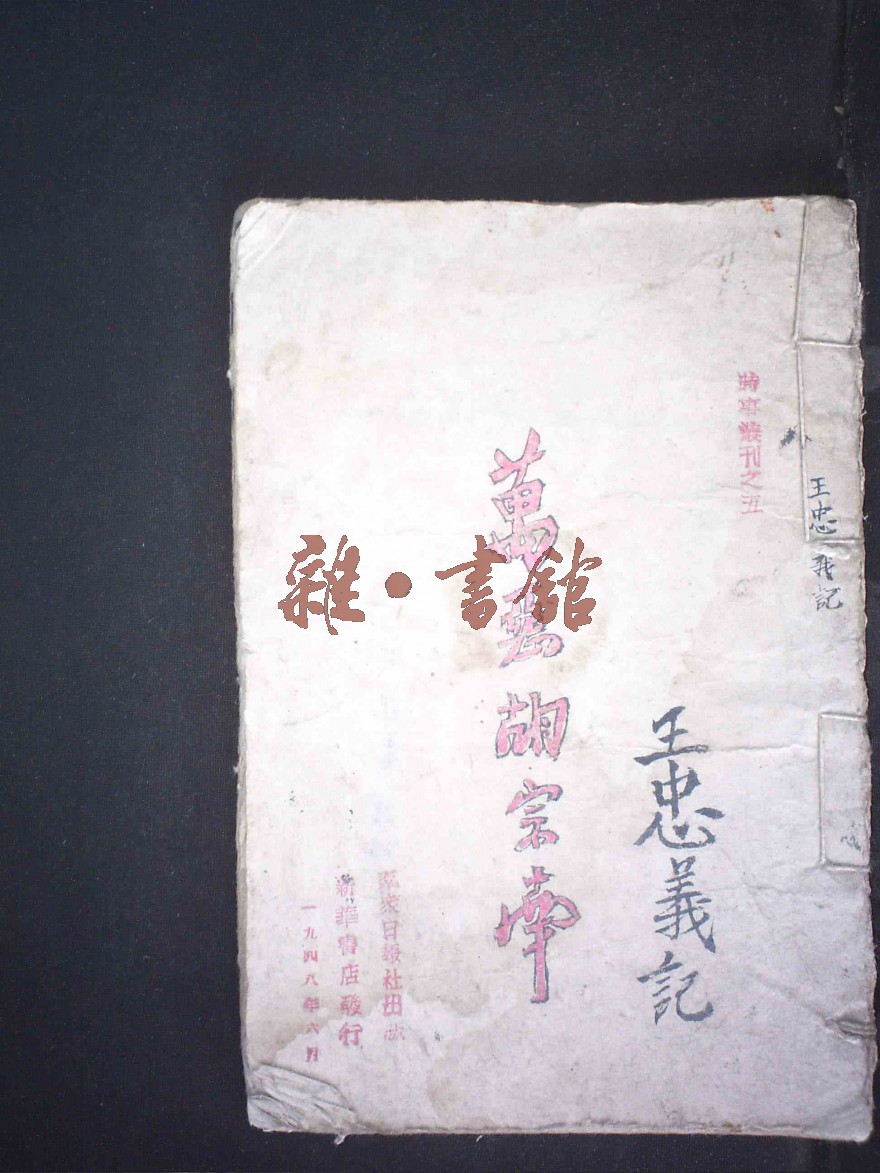 時事叢刊之五
王忠義記
王忠義記
萬惡胡宗南
群衆日報社出版
新華書店發行
一九四八年六月
雜·書館